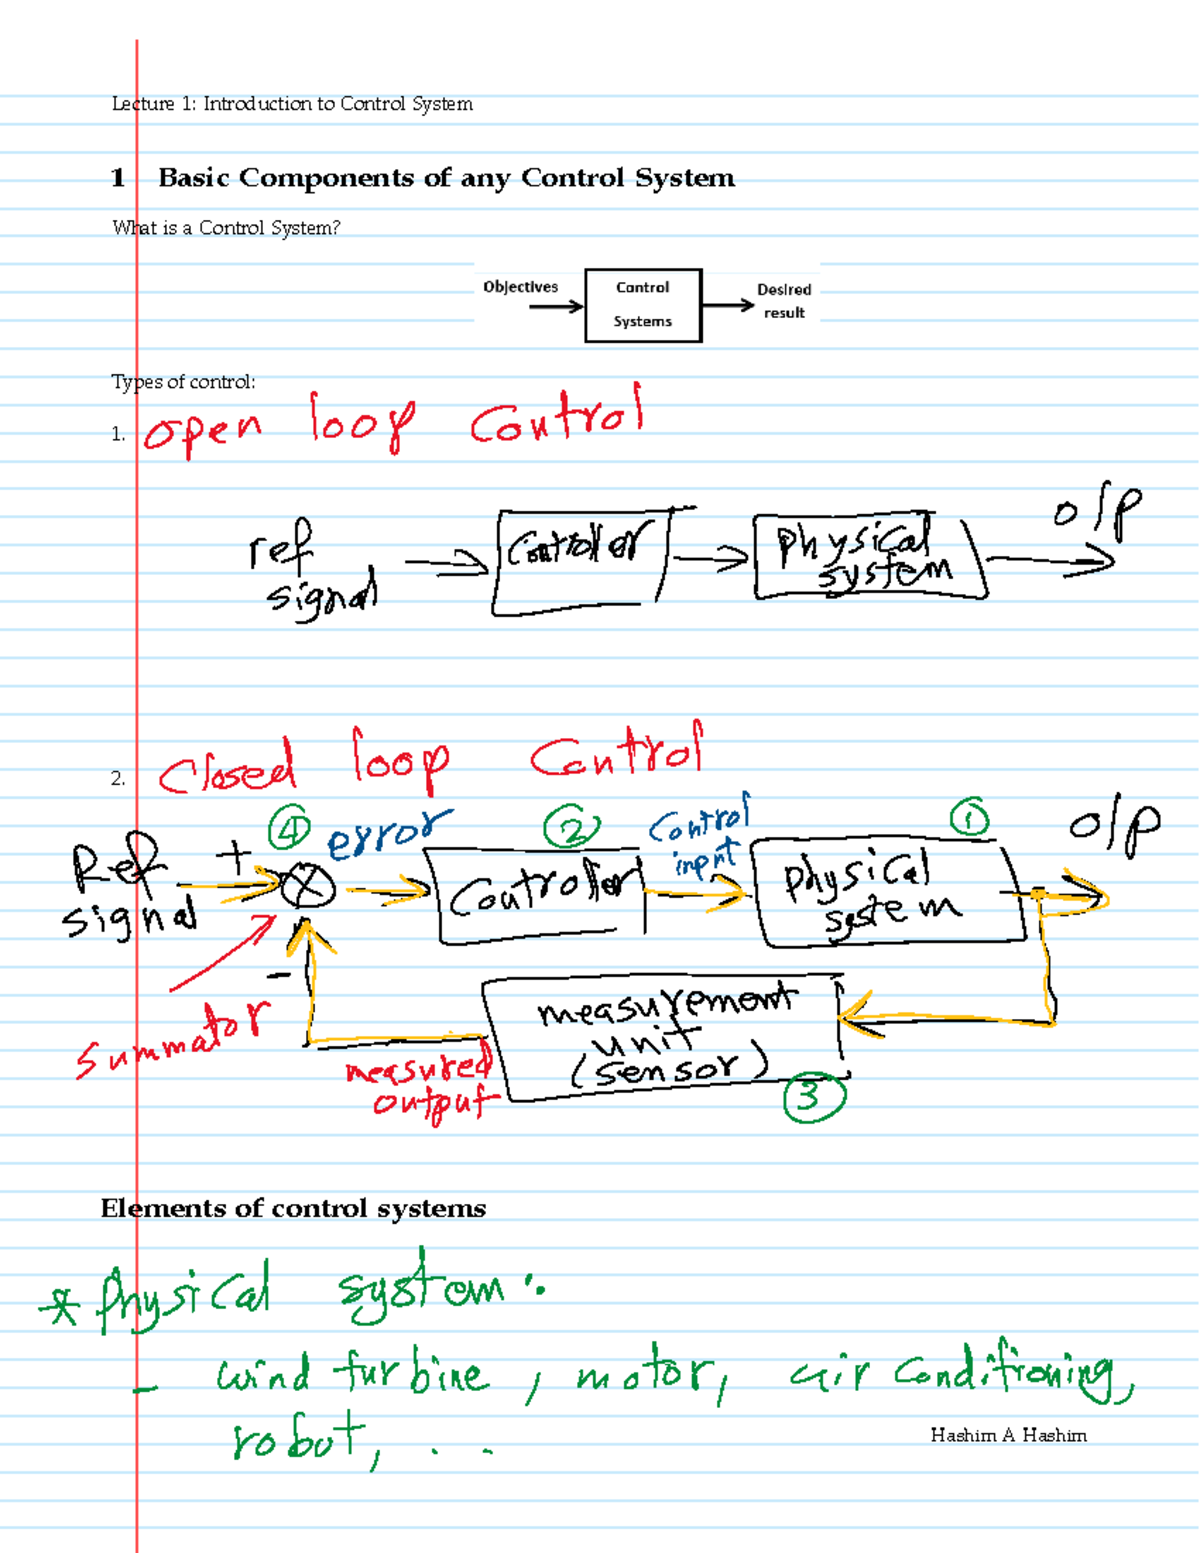 Lecture 1: Introduction to Control System
1 Basic Components of any Control System
What is a Control System?
Objectives
Control
Systems
Desired
result
Types of control:
1. open loop Control
ref
signal
Controller
physical
system
o/p
2. Closed loop Control
④ error ② Control
input
① o/p
Ref
signal
+
Controller
physical
system
-
Summator
measurement
unit
(sensor)
③
measured
output
Elements of control systems
* Physical system:
- wind turbine, motor, air conditioning,
robot, ...
Hashim A Hashim